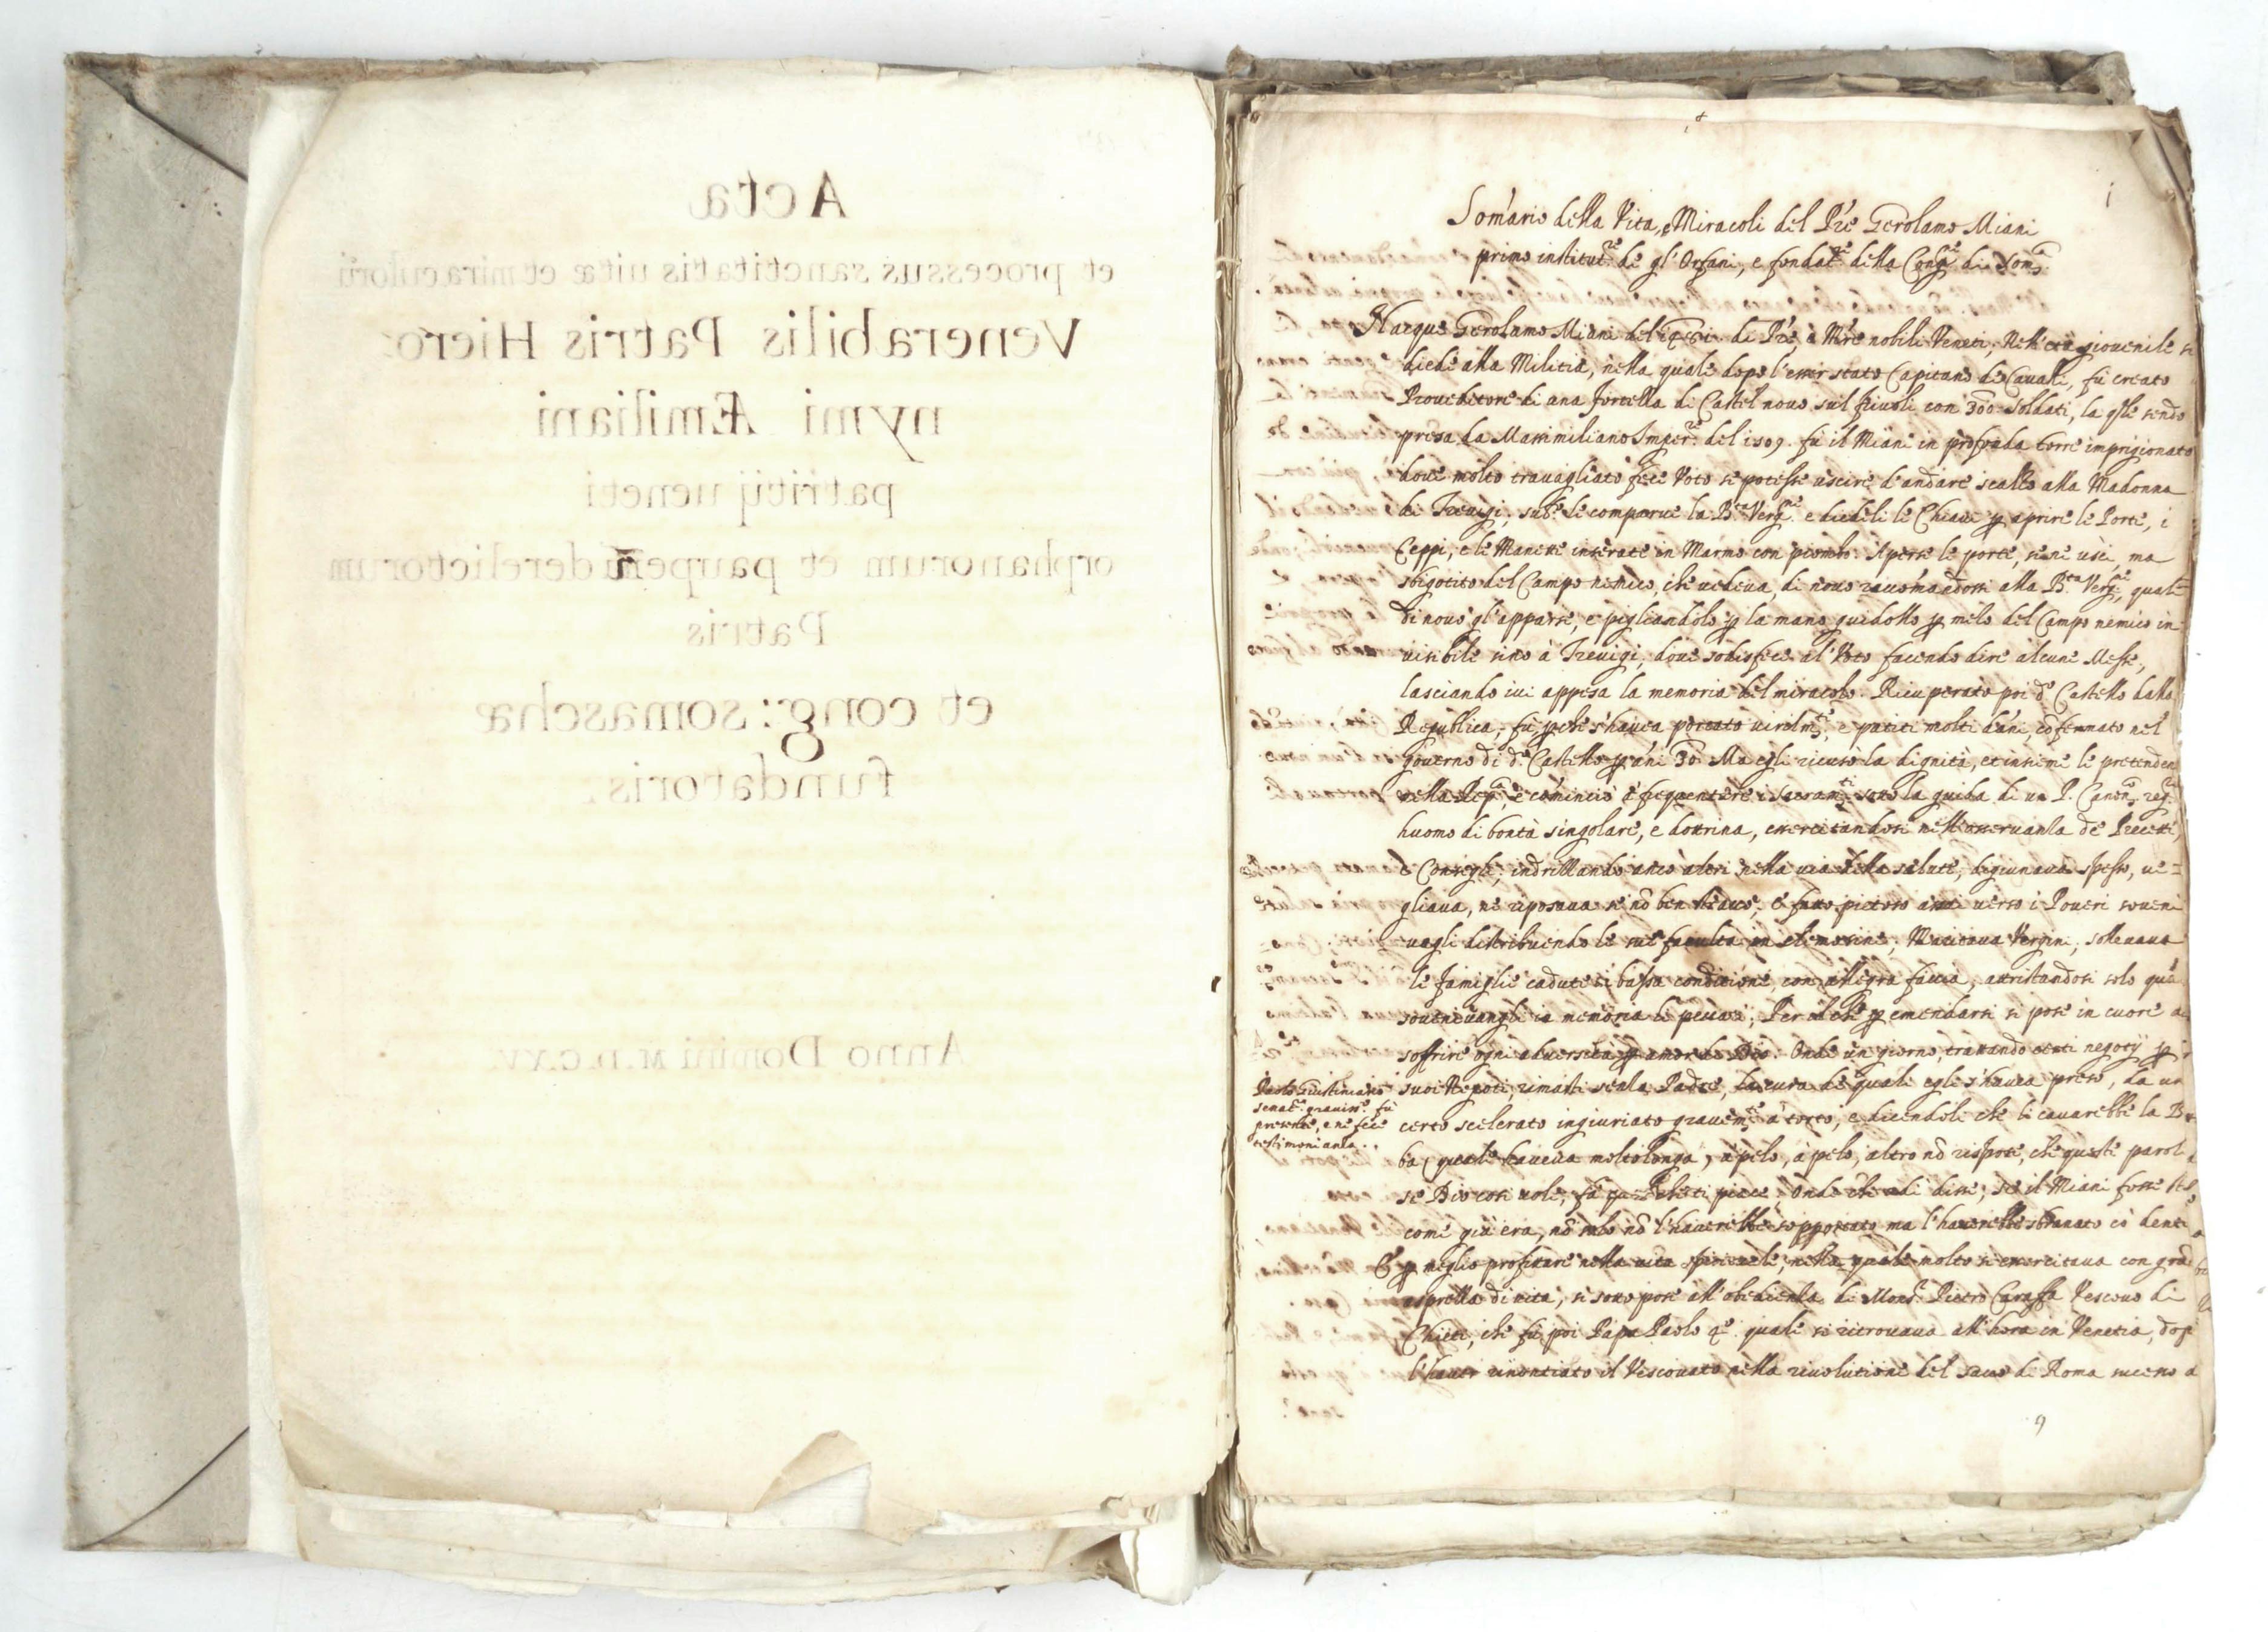 Acta
et processus sanctitatis uitæ et miraculorũ
Venerabilis Patris Hiero:
nymi Æmiliani
patritij ueneti
orphanorum et pauperũ derelictorum
Patris
et cong: somaschæ
fundatoris.
Anno Domini M.D.C.XV.
1
Som̃ario della Vita, e Miracoli del Pr̃e Gerolamo Miani
primo institut.re de gl'Orfani, e fondat.re della Cong.ne di Som.a
Nacque Gerolamo Miani del di Pr̃e, e Mr̃e nobili Veneti, Nell'età giovenile si
diede alla Militia, nella quale dopo l'esser stato Capitano de Cavalli, fù creato
Proveditore di una fortezza di Castel novo sul friuoli con 300 soldati, la qle sendo
presa da Massimiliano Imper.re del 1509. fù il Miani in profonda torre imprigionato
dove molto travagliato fece Voto se potesse uscire d'andare scalzo alla Madonna
di Trevigi, sub.o le comparve la B.ta Verg.ne e diedeli le Chiavi ꝑ aprire le Porte, i
Ceppi, e le Manette inserate in Marmo con piombo. Aperse le porte, se ne uscì, ma
sbigotito del Campo nemico, che vedeva, di novo racom̃adossi alla B.ta Verg.ne, quale
di novo gl'apparse, e pigliandolo ꝑ la mano guidollo ꝑ mezo del Campo nemico in
visibile sino à Trevigi, dove sodisfece al Voto facendo dire alcune Messe,
lasciando ivi appesa la memoria del miracolo. Ricuperato poi d.o Castello dalla
Republica, fù ꝑche s'havea portato virilm.te, e patiti molti dãni, cõfermato nel
governo di d.o Castello ꝑ ãni 30. Ma egli ricusò la dignità, et insieme le pretenden
nella Rep.ca, e cominciò à frequentare i sacram.ti sotto la guida di un P. Canon.co reg.re
huomo di bontà singolare, e dottrina, essercitandosi nell'osservanza de Precetti,
e Consegli, indrizzando anco altri nella via della salute, digiunava spesso, ve=
gliava, ne riposava se nõ ben stanco, e fatto pietoso verso i Poveri soveni
vagli distribuendo le sue facultà in elemosine, Maritava Vergini, sollevava
le famiglie cadute in bassa conditione, con allegra faccia, attristandosi solo quã
sovenivangli in memoria li peccati, Per il che ꝑ emendarsi si pose in cuore di
soffrire ogni adversità ꝑ amor de Dio. Onde un giorno, trattando certi negotij ꝑ i
suoi Nepoti, rimasti senza Padre, la cura de quali egli s'havea preso, da un
certo scelerato ingiuriato gravem.te à torto, e dicendoli che li cavarebbe la Bar
ba (quale haveva molto longa) à pelo, à pelo, altro nõ rispose, che queste parol
se Dio cosi vole, fà pur che ti piace. Onde chi udì disse, se il Miani fosse st
come già era, nõ solo nõ l'haverebbe sopportato ma l'haverebbe sbranato cõ denti
E ꝑ meglio profitare nella vita spirituale, nella quale molto si essercitava con grãd
asprezza di vita, si sottopose all'obedienza di Mons.r Pietro Caraffa Vescovo di
Chieti, che fù poi Papa Paolo 4.o quale si ritrovava all'hora in Venetia, dop
l'haver rinontiato il Vescovato nella rivolutione del sacco di Roma
Paolo Giustiniano
senat.re graviss.o fù
presente, e ne fece
testimonianza.